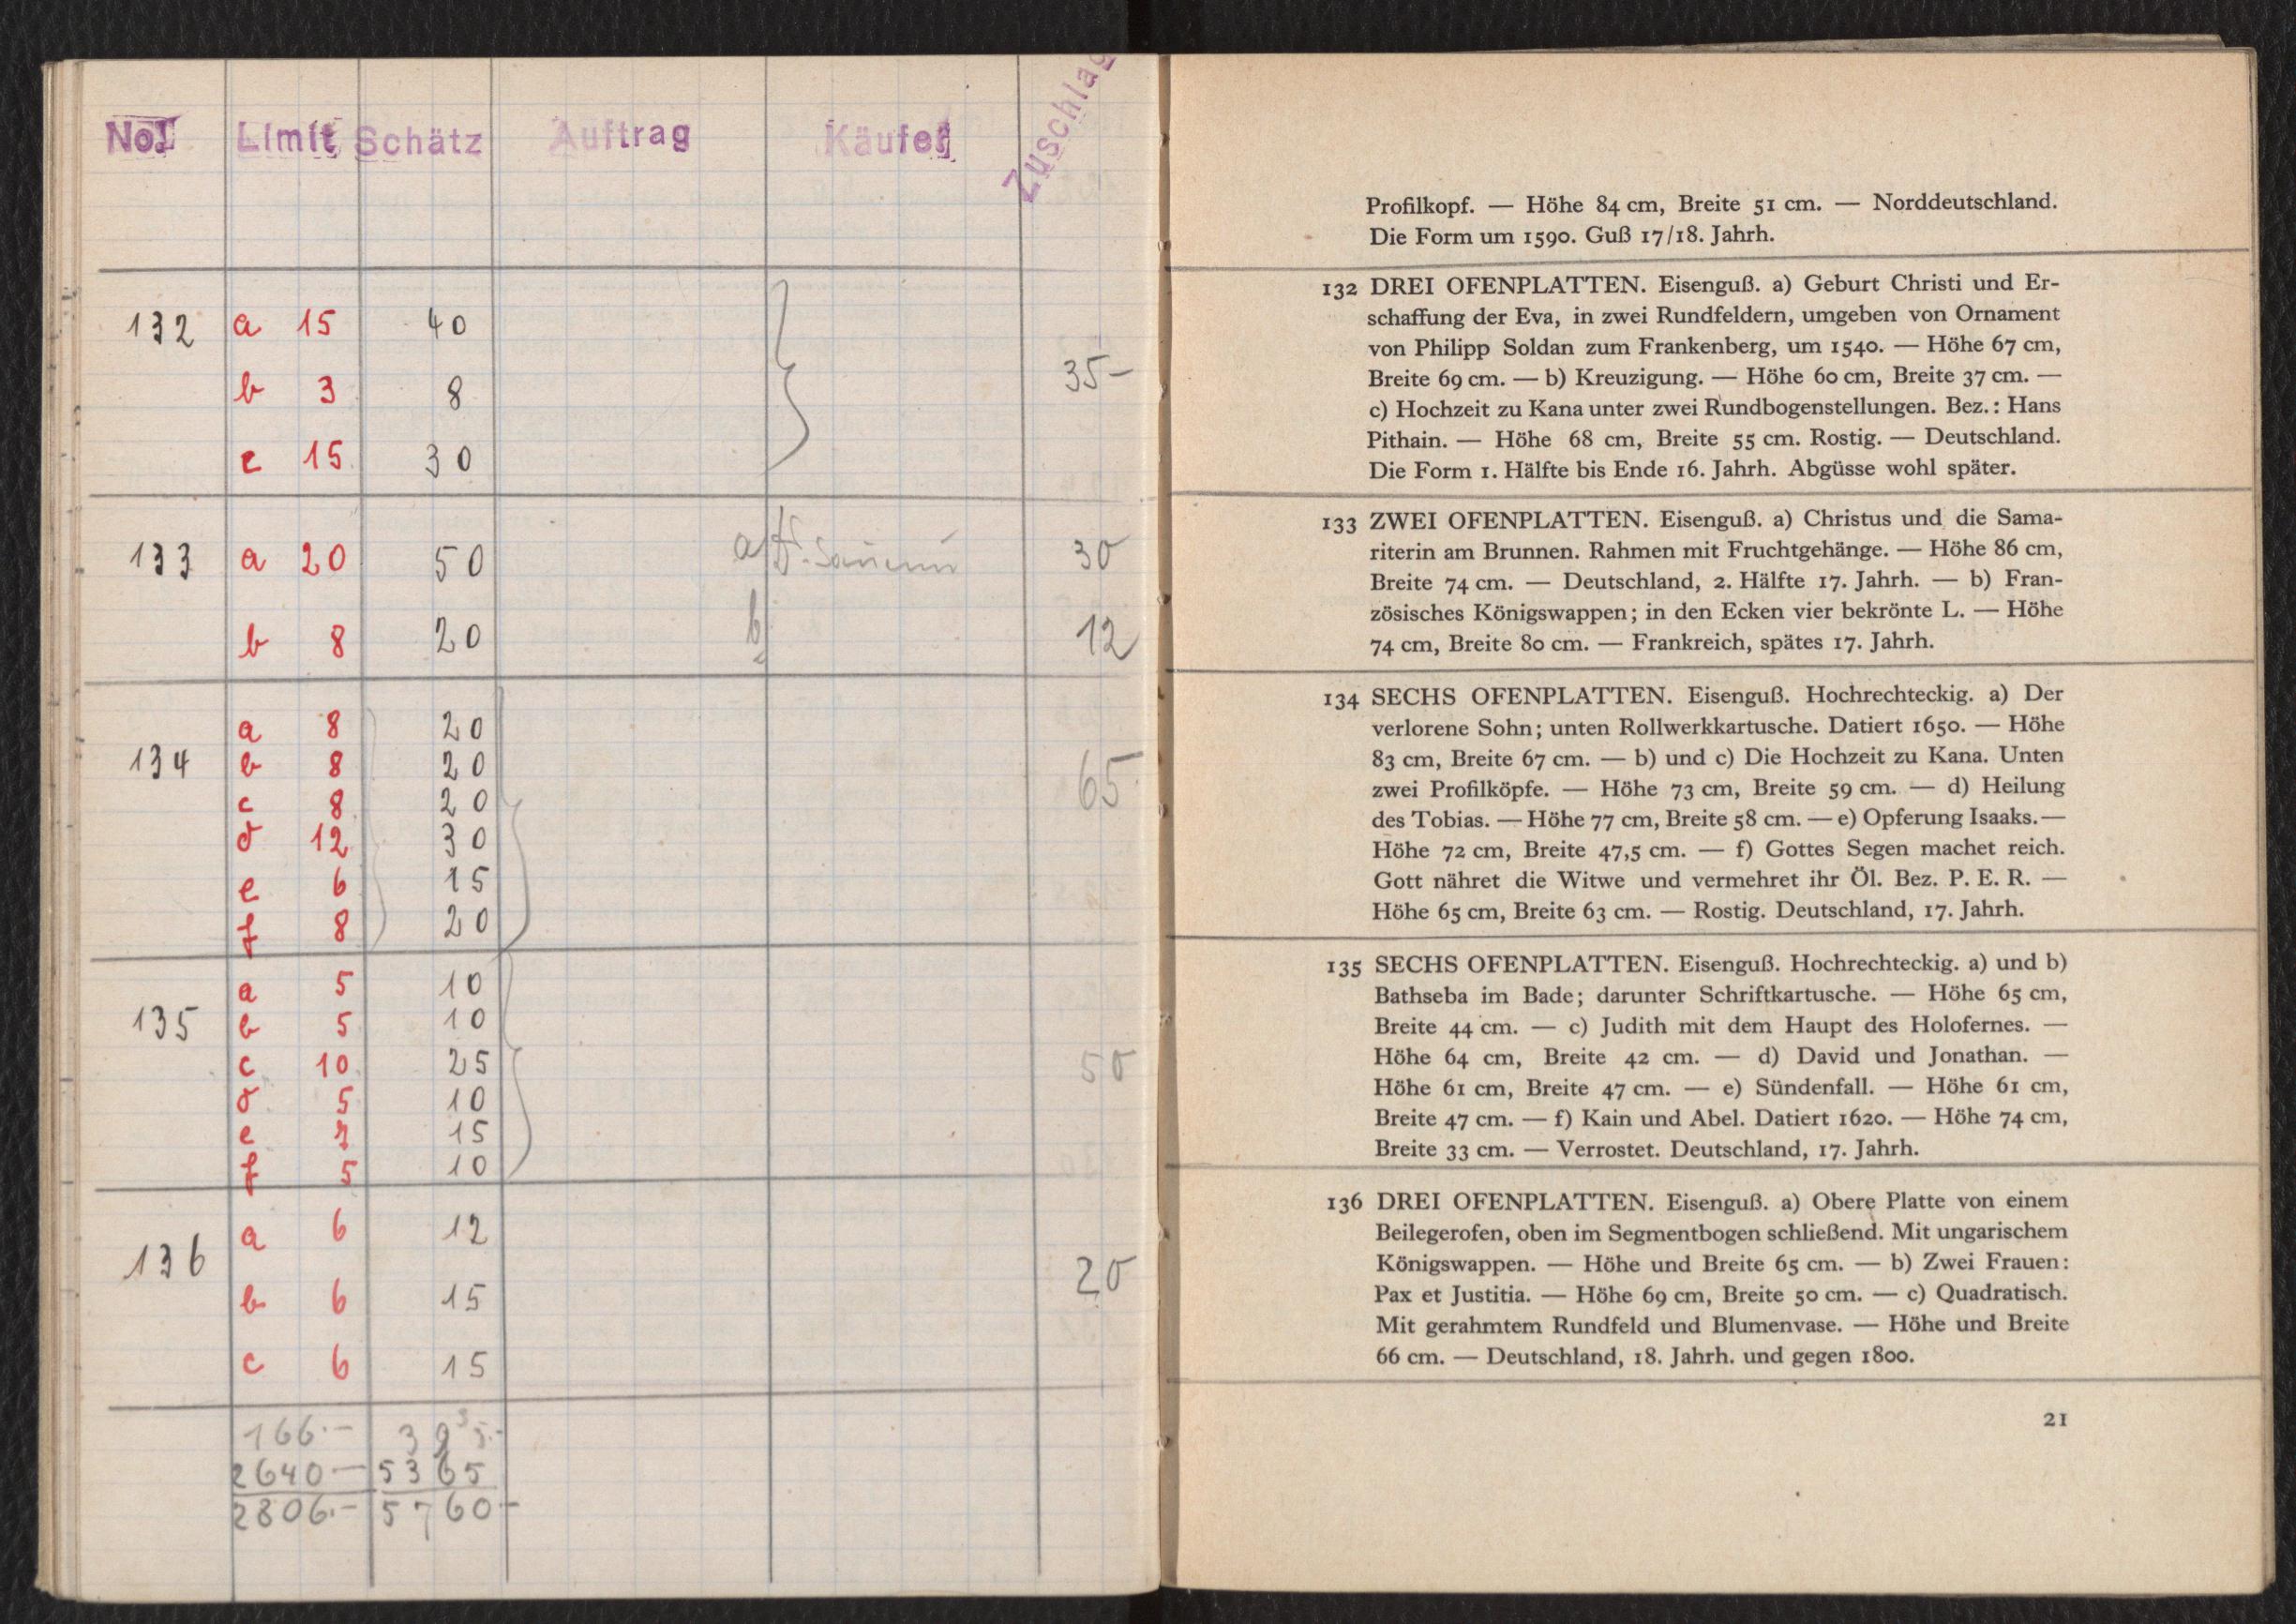 No. Limit Schätz Auftrag Käufer Zuschlag
132 a 15 40
b 3 8
c 15 30
35-
133 a 20 50 a) 30
b 8 20 b 12
a 8 20
134 b 8 20 65
c 8 20
d 12 30
e 6 15
f 8 20
a 5 10
135 b 5 10
c 10 25 50
d 5 10
e 7 15
f 5 10
a 6 12
136 20
b 6 15
c 6 15
166.- 395.-
2640- 5365
2806.- 5760-
Profilkopf. — Höhe 84 cm, Breite 51 cm. — Norddeutschland.
Die Form um 1590. Guß 17/18. Jahrh.
132 DREI OFENPLATTEN. Eisenguß. a) Geburt Christi und Er-
schaffung der Eva, in zwei Rundfeldern, umgeben von Ornament
von Philipp Soldan zum Frankenberg, um 1540. — Höhe 67 cm,
Breite 69 cm. — b) Kreuzigung. — Höhe 60 cm, Breite 37 cm. —
c) Hochzeit zu Kana unter zwei Rundbogenstellungen. Bez.: Hans
Pithain. — Höhe 68 cm, Breite 55 cm. Rostig. — Deutschland.
Die Form 1. Hälfte bis Ende 16. Jahrh. Abgüsse wohl später.
133 ZWEI OFENPLATTEN. Eisenguß. a) Christus und die Sama-
riterin am Brunnen. Rahmen mit Fruchtgehänge. — Höhe 86 cm,
Breite 74 cm. — Deutschland, 2. Hälfte 17. Jahrh. — b) Fran-
zösisches Königswappen; in den Ecken vier bekrönte L. — Höhe
74 cm, Breite 80 cm. — Frankreich, spätes 17. Jahrh.
134 SECHS OFENPLATTEN. Eisenguß. Hochrechteckig. a) Der
verlorene Sohn; unten Rollwerkkartusche. Datiert 1650. — Höhe
83 cm, Breite 67 cm. — b) und c) Die Hochzeit zu Kana. Unten
zwei Profilköpfe. — Höhe 73 cm, Breite 59 cm. — d) Heilung
des Tobias. — Höhe 77 cm, Breite 58 cm. — e) Opferung Isaaks. —
Höhe 72 cm, Breite 47,5 cm. — f) Gottes Segen machet reich.
Gott nähret die Witwe und vermehret ihr Öl. Bez. P. E. R. —
Höhe 65 cm, Breite 63 cm. — Rostig. Deutschland, 17. Jahrh.
135 SECHS OFENPLATTEN. Eisenguß. Hochrechteckig. a) und b)
Bathseba im Bade; darunter Schriftkartusche. — Höhe 65 cm,
Breite 44 cm. — c) Judith mit dem Haupt des Holofernes. —
Höhe 64 cm, Breite 42 cm. — d) David und Jonathan. —
Höhe 61 cm, Breite 47 cm. — e) Sündenfall. — Höhe 61 cm,
Breite 47 cm. — f) Kain und Abel. Datiert 1620. — Höhe 74 cm,
Breite 33 cm. — Verrostet. Deutschland, 17. Jahrh.
136 DREI OFENPLATTEN. Eisenguß. a) Obere Platte von einem
Beilegerofen, oben im Segmentbogen schließend. Mit ungarischem
Königswappen. — Höhe und Breite 65 cm. — b) Zwei Frauen:
Pax et Justitia. — Höhe 69 cm, Breite 50 cm. — c) Quadratisch.
Mit gerahmtem Rundfeld und Blumenvase. — Höhe und Breite
66 cm. — Deutschland, 18. Jahrh. und gegen 1800.
21